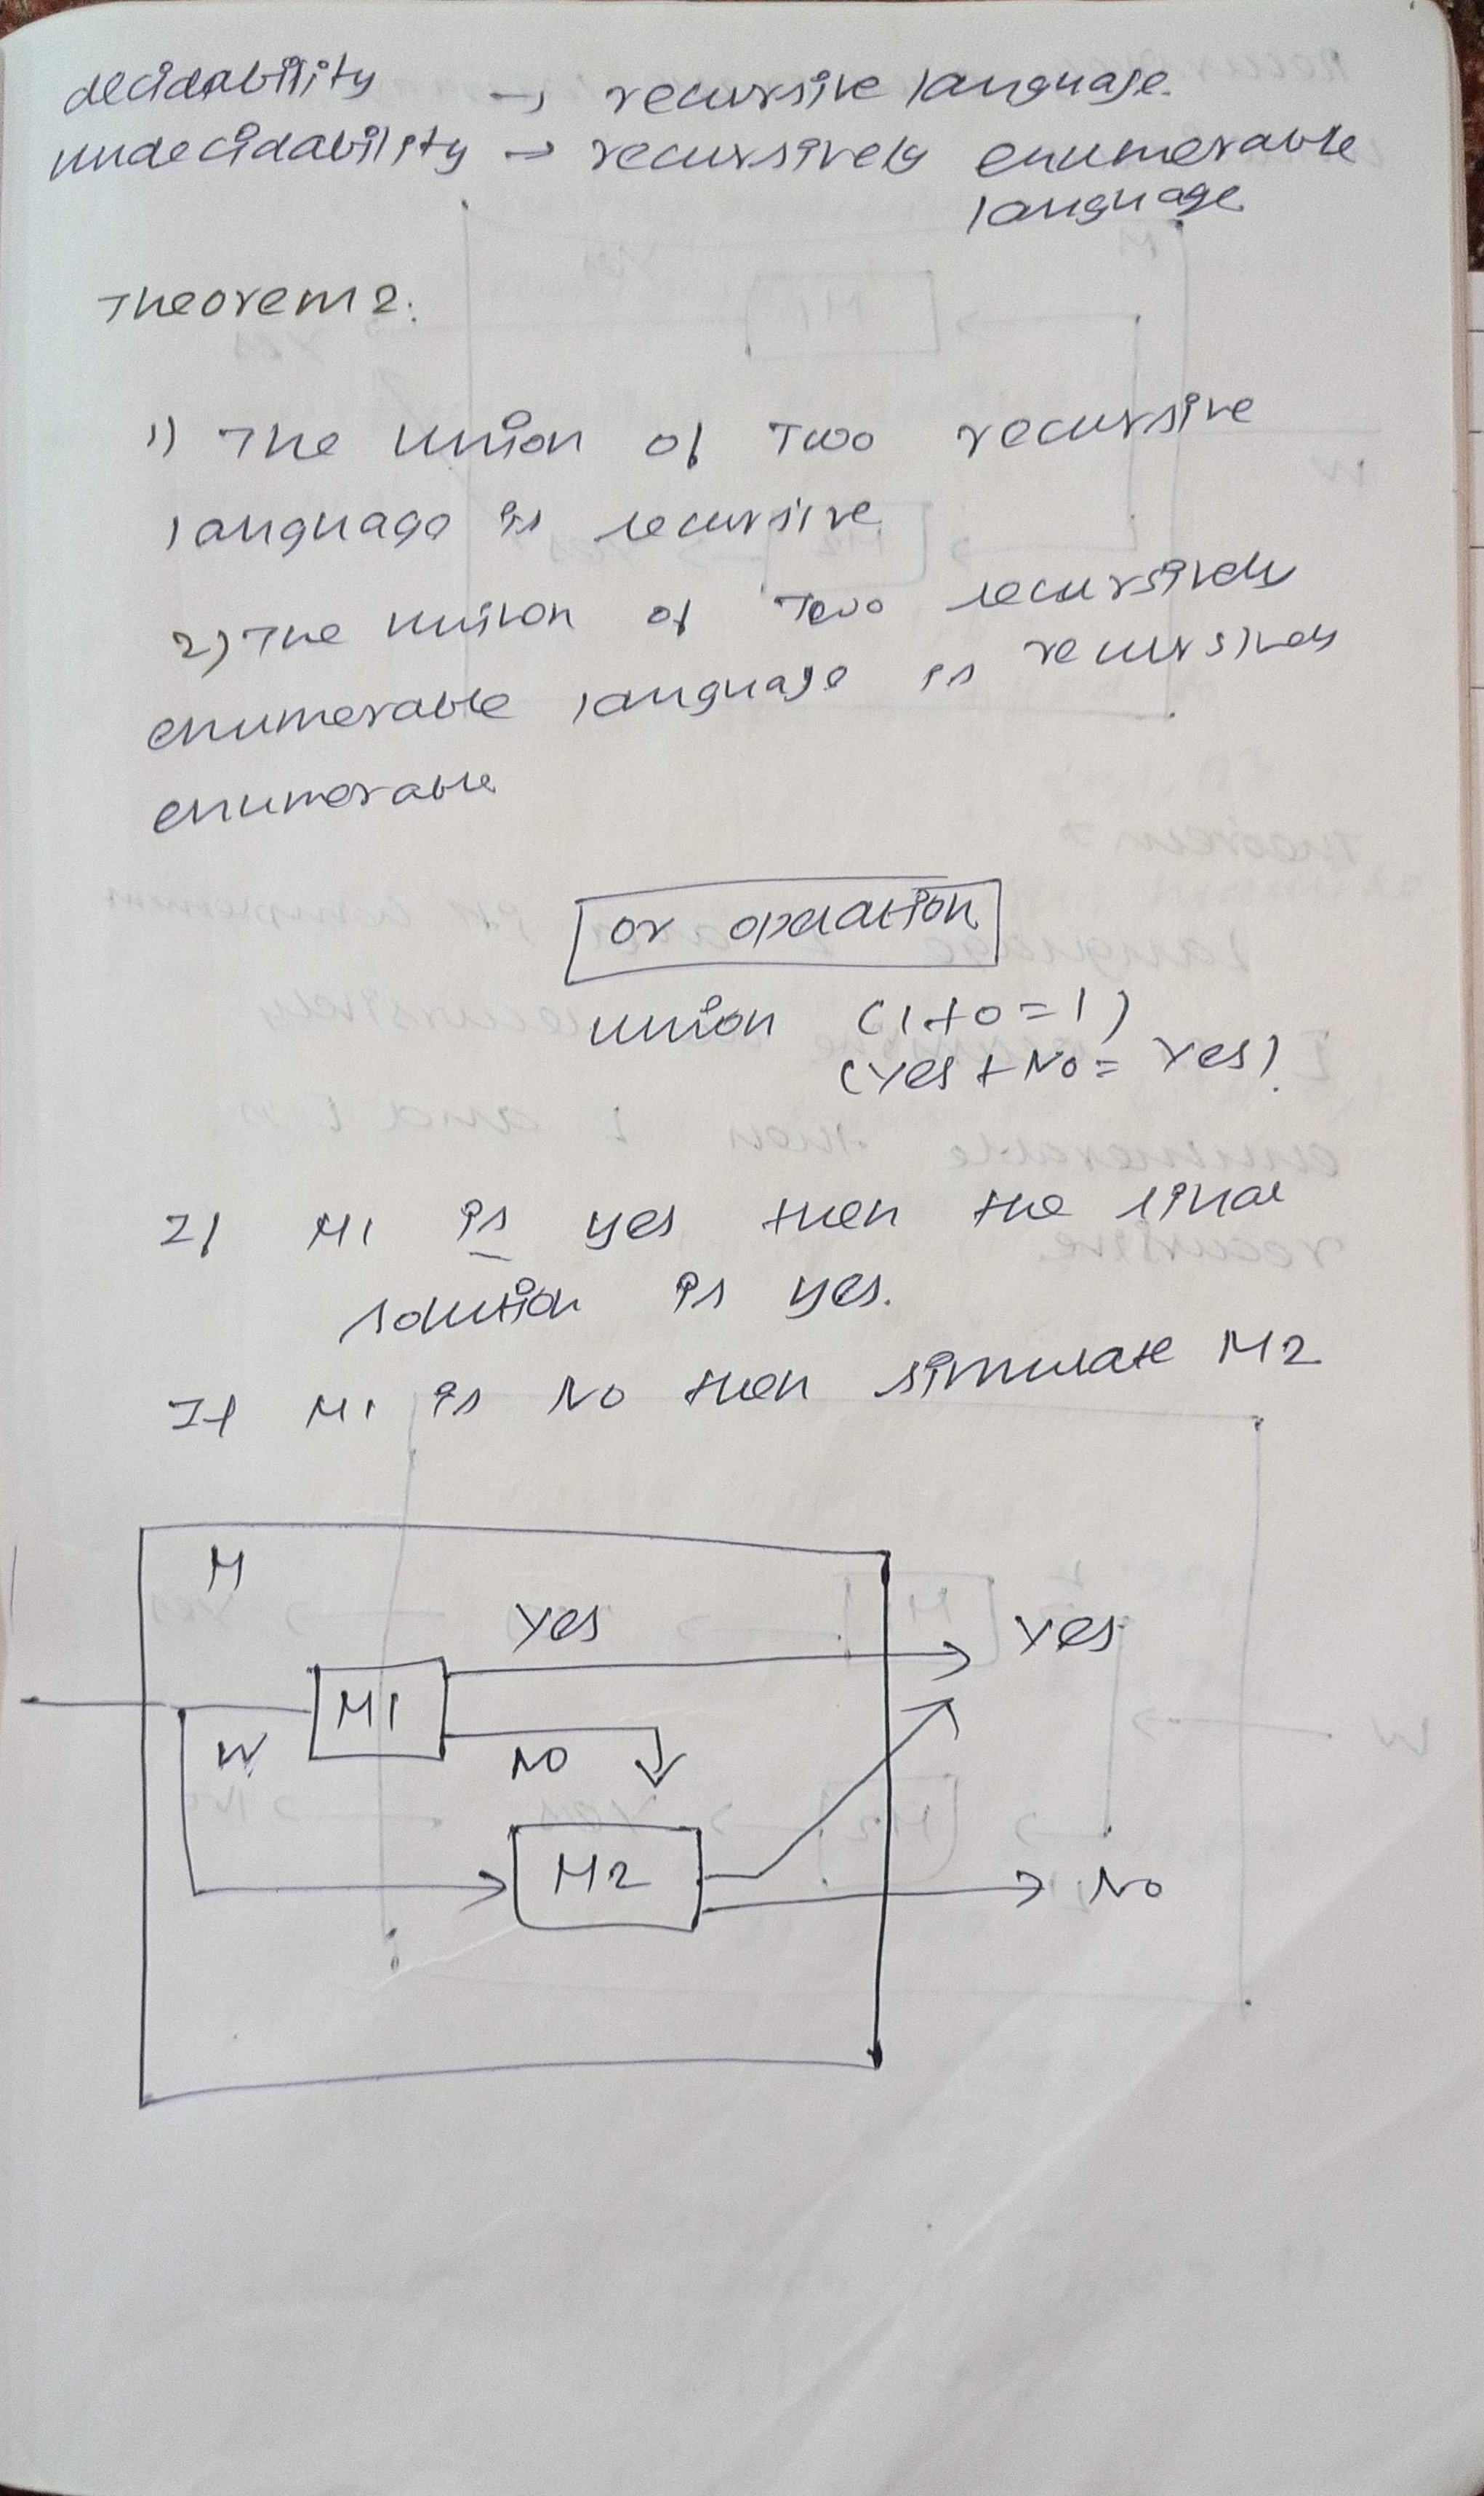 decidability → recursive language.
undecidability → recursively enumerable
language
Theorem 2:
1) The union of Two recursive
language is recursive
2) The union of Two recursively
enumerable language is recursively
enumerable
or operation
union (1+0=1)
(Yes + No = Yes).
If M1 is yes then the final
solution is yes.
If M1 is No then simulate M2
M
Yes Yes
M1
W No
M2 No